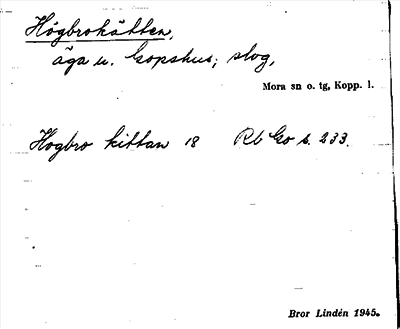 Högbrokätten,
äga u. Gopshus; skog,
Mora sn o. tg, Kopp. l.
Hogbro kittan 18 Rb Go s. 233.
Bror Lindén 1945.